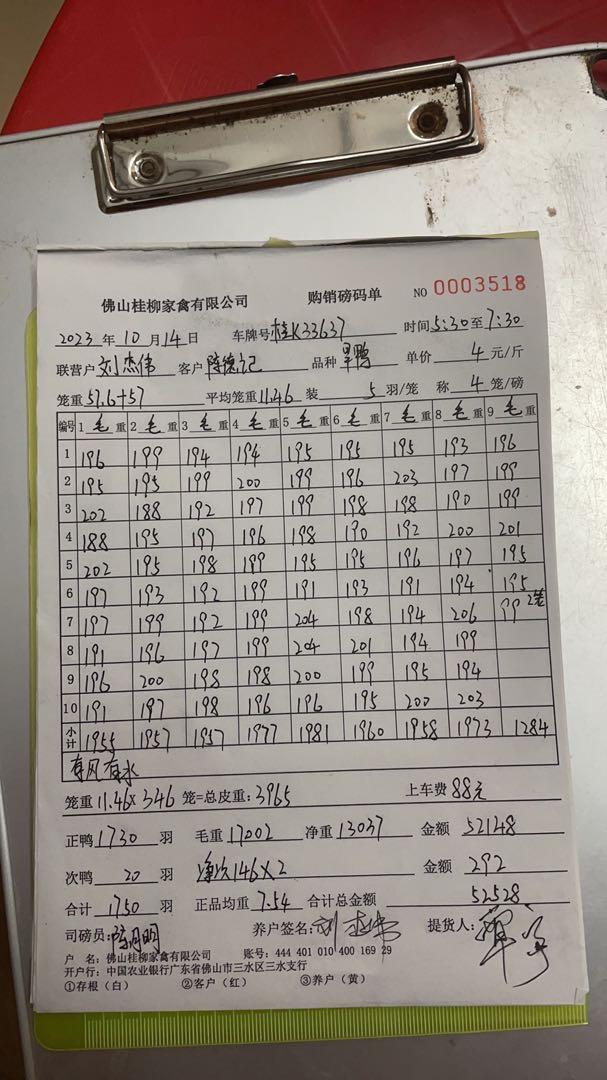 佛山桂柳家禽有限公司 购销磅码单 NO 0003518
2023 年 10 月 14 日 车牌号 桂K33637 时间 5:30 至 7:30
联营户 刘杰伟 客户 陈德记 品种 旱鸭 单价 4 元/斤
笼重 57.6+57 平均笼重 11.46 装 5 羽/笼 称 4 笼/磅
编号 1 毛 重 2 毛 重 3 毛 重 4 毛 重 5 毛 重 6 毛 重 7 毛 重 8 毛 重 9 毛 重
1 196 199 194 194 195 195 195 193 196
2 195 195 199 200 199 196 203 197 199
3 202 188 192 197 199 198 198 190 199
4 188 195 197 196 198 190 192 200 201
5 202 195 198 199 195 195 196 197 195
6 197 193 192 199 191 193 191 194 195
7 197 199 192 199 204 198 194 206 99 2笼
8 191 196 197 199 204 201 194 199
9 196 200 198 198 200 199 195 194
10 191 197 198 196 196 195 200 203
小计 1955 1957 1957 1977 1981 1960 1958 1973 1284
有风有水
笼重 11.46×346 笼=总皮重: 3965 上车费 88元
正鸭 1730 羽 毛重 17002 净重 13037 金额 52148
次鸭 20 羽 净次146×2 金额 292
合计 1750 羽 正品均重 7.54 合计总金额 52528
司磅员: 陈月明 养户签名: 刘杰伟 提货人:
户 名: 佛山桂柳家禽有限公司 账号: 444 401 010 400 169 29
开户行: 中国农业银行广东省佛山市三水区三水支行
①存根（白） ②客户（红） ③养户（黄）